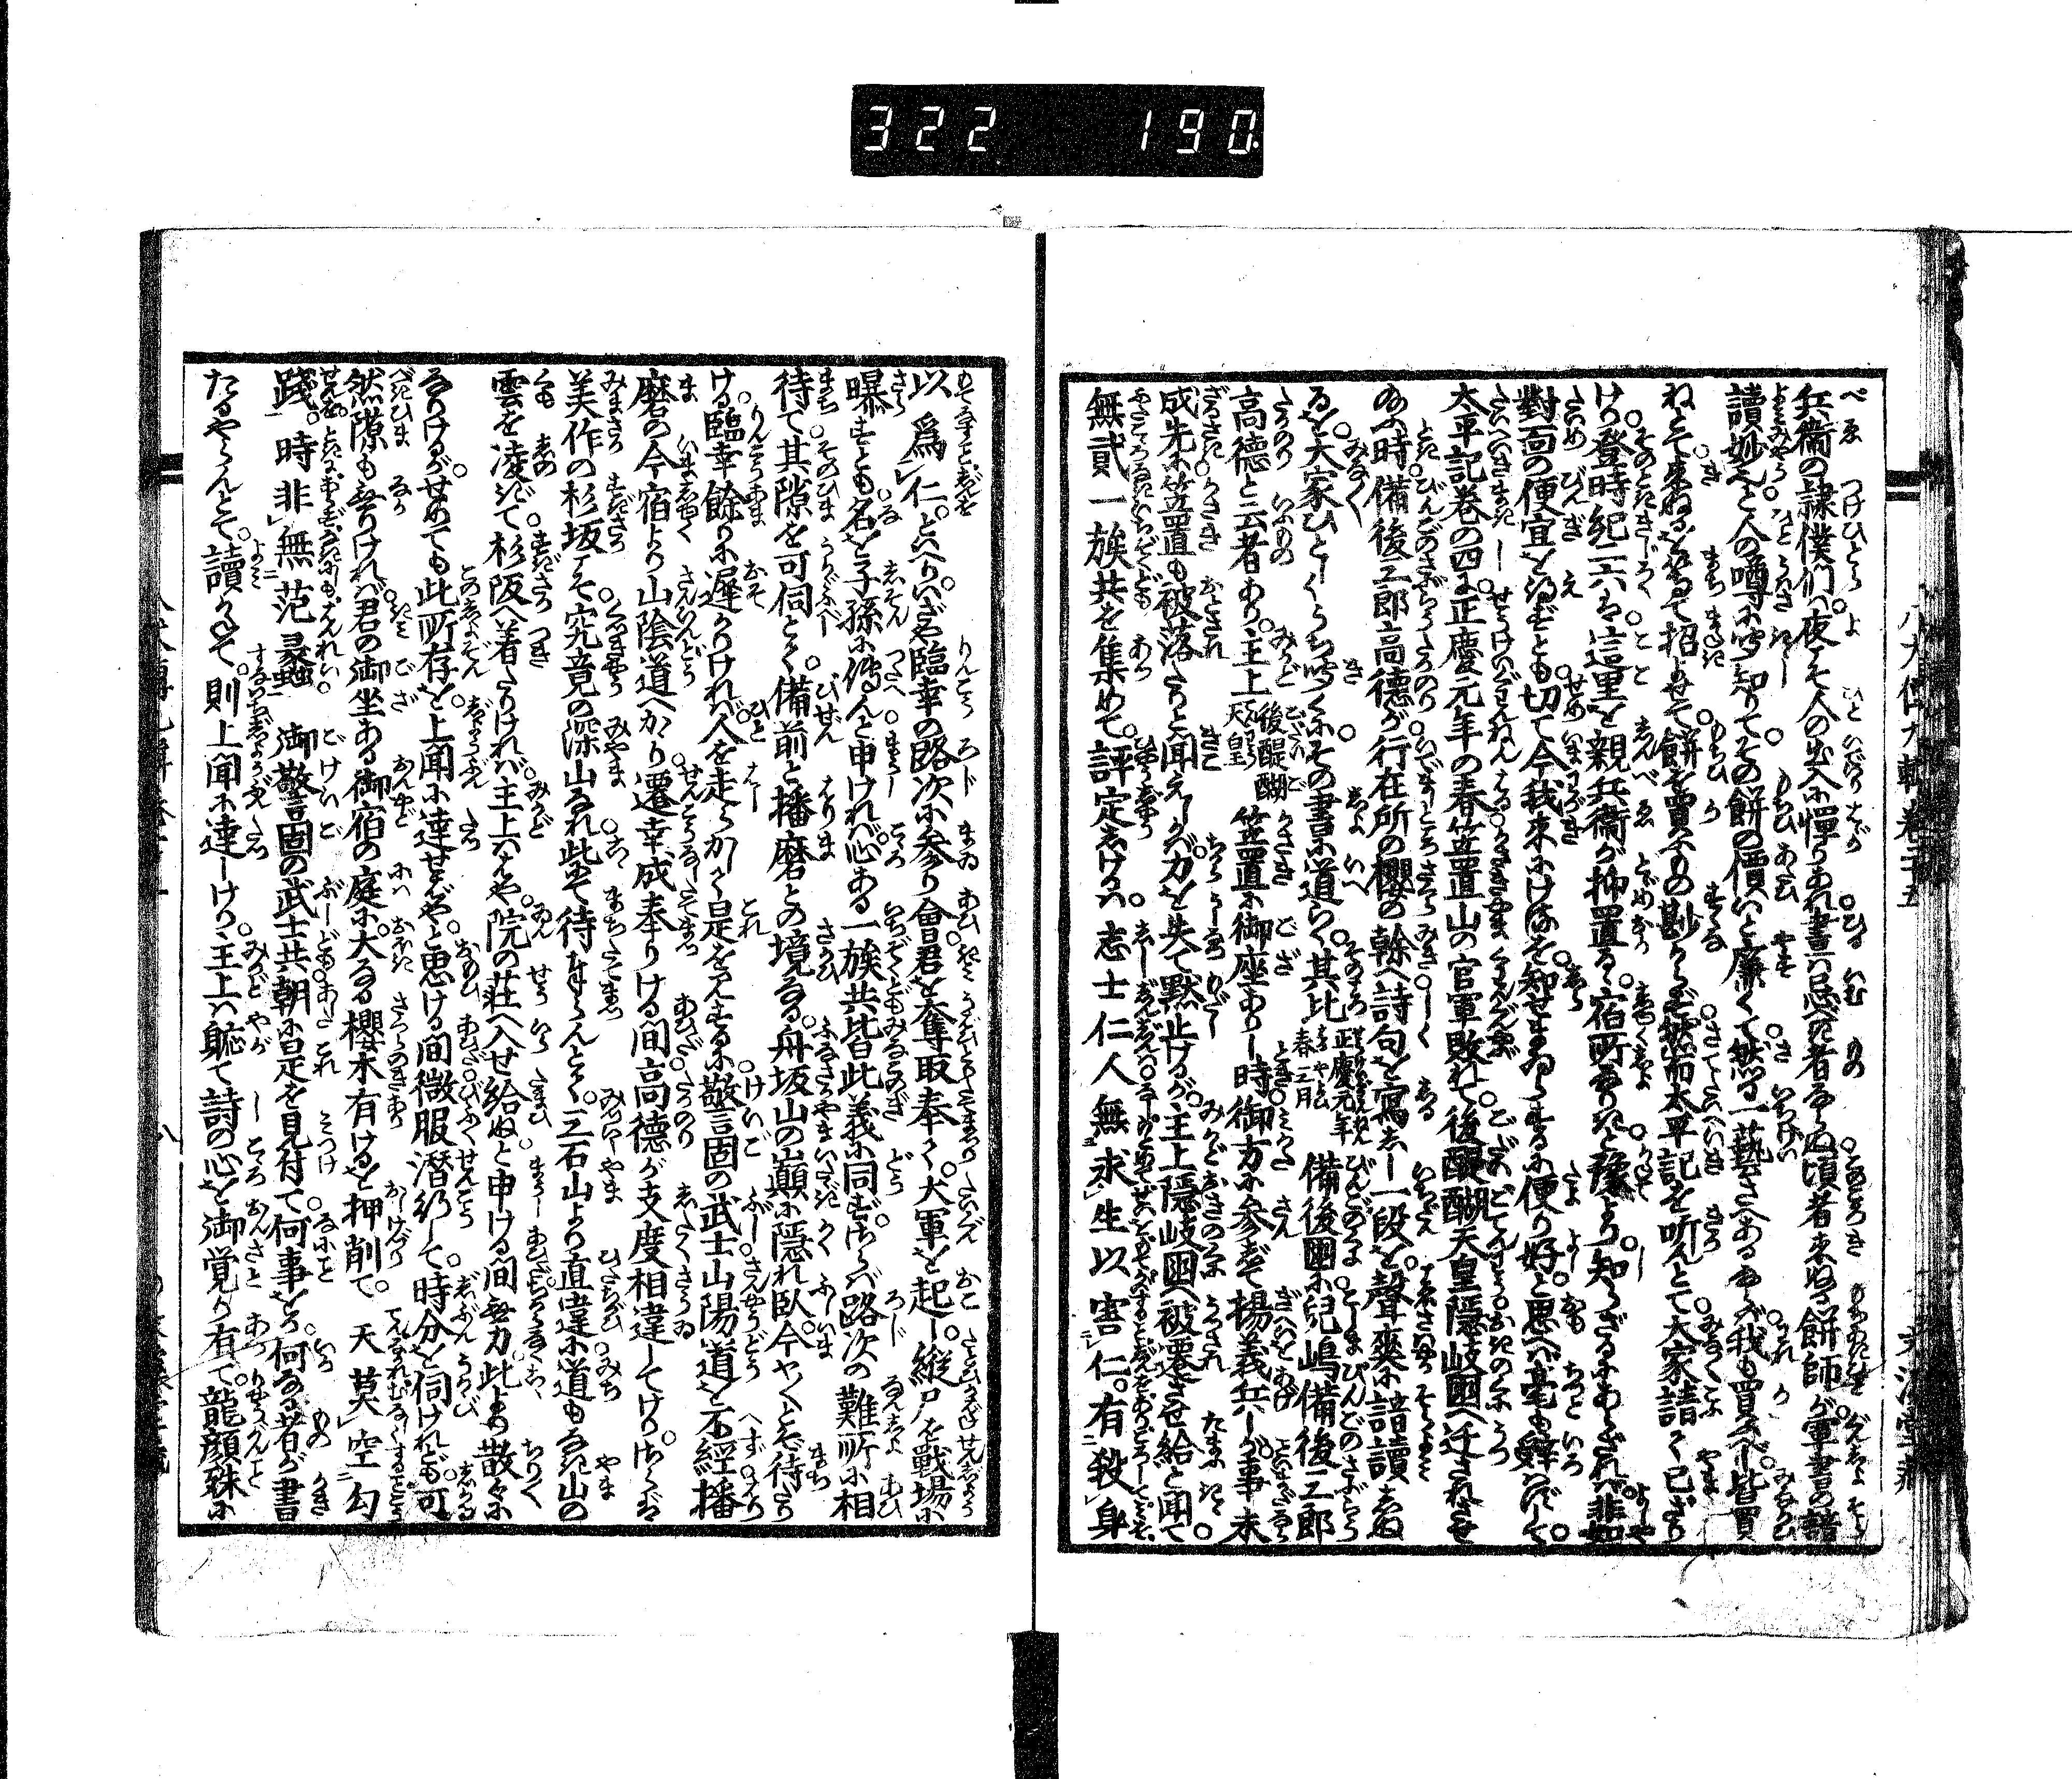 322 190
兵衞の隷僕們ハ夜こそ人の出入に憚りあれ晝ハ忌べき者ならぬ頃者來ぬる餅師が軍書の諳
讀妙也と人の噂に聞知りてその餅の價いと廉くて然る一藝さへあるなれば我も買ふべし皆買
ねとて來ぬるを笛て招よせて餅を買ふもの尠からず然而太平記を听んとて大家請て已ざり
けり登時紀二六ハ這里を親兵衞が抑置るゝ宿所なりきと豫より知らざるにあらざれバ非如
對面の便宜を得ずとも切て今我來にけるを知せまゐらするに便り好と思へバ毫も辭ハずして
太平記卷の四に正慶元年の春笠置山の官軍敗れて後醍醐天皇隱岐國へ迁されさせ
給ふ時備後三郎高德が行在所の櫻の幹へ詩句を寫しし一段を聲爽に諳讀しぬ
るを大家ひとしくうち听くにその書に道らく其比 正慶元年春三月 備後國に兒嶋備後三郎
高德と云者あり主上 後醍醐天皇 笠置に御座ありし時御方に參じて揚義兵しが事未
成先に笠置も被落たりと聞えしかバ力を失て默止けるが主上隱岐國へ被遷させ給と聞て
無貳一族共を集めて評定しけるハ志士仁人無求生以害仁有殺身
以爲仁といへりいざや臨幸の路次に參り會君を奪取奉て大軍を起し縱尸を戰場に
曝すとも名を子孫に傳んと申けれバ心ある一族共皆此義に同ずさらバ路次の難所に相
待て其隙を可伺とて備前と播磨との境なる舟坂山の巓に隱れ臥今や〳〵とぞ待たり
ける臨幸餘りに遲かりけれバ人を走らかして是を見するに警固の武士山陽道を不經播
磨の今宿より山陰道へかゝり遷幸成奉りける間高德が支度相違してけりさらバ
美作の杉坂こそ究竟の深山なれ此にて待奉らんとて三石山より直違に道もなき山の
雲を凌ぎて杉阪へ着たりけれバ主上ハはや院の莊へ入せ給ぬと申ける間無力此より散々に
なりけるがせめても此所存を上聞に達せばやと思ける間微服潛行して時分を伺けれども可
然隙も無りけれバ君の御坐ある御宿の庭に大なる櫻木有けるを押削て天莫空勾
踐時非無范蠡 御警固の武士共朝に是を見付て何事をか何なる者が書
たるやらんとて讀かねて則上聞に達しけり主上ハ軈て詩の心を御覚り有て龍顔殊に